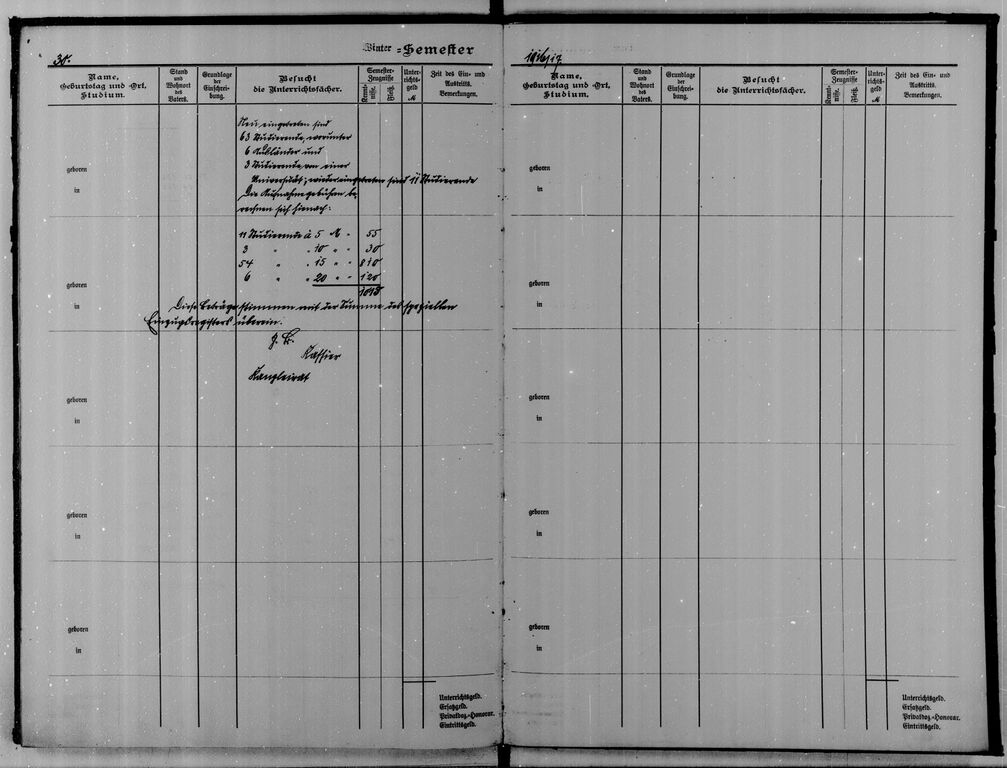 30.
Winter-Semester
1916/17
Name,
Geburtstag und -Ort,
Studium.
Stand
und
Wohnort
des
Vaters.
Grundlage
der
Einschrei-
bung.
Besucht
die Unterrichtsfächer.
Semester-
Zeugnisse
Kennt-
nisse.
Fleiß.
Unter-
richts-
geld
M
Zeit des Ein- und
Austritts.
Bemerkungen.
Neu eingetreten sind
63 Studierende, worunter
6 Ausländer und
3 Studierende von einer
Universität; wiedereingetreten sind 11 Studierende
Die Aufnahmegebühren be-
rechnen sich hienach:
11 Studierende à 5 M = 55
3 " " 10 " " 30
54 " " 15 " " 810
6 " " 20 " " 120
Diese Beträge stimmen mit der Summe des speziellen
Einzugsregisters überein.
Kassier
Kanzleirat
geboren
in
geboren
in
geboren
in
geboren
in
geboren
in
Unterrichtsgeld.
Ersatzgeld.
Privatdoz.-Honorar.
Eintrittsgeld.
Name,
Geburtstag und -Ort,
Studium.
Stand
und
Wohnort
des
Vaters.
Grundlage
der
Einschrei-
bung.
Besucht
die Unterrichtsfächer.
Semester-
Zeugnisse
Kennt-
nisse.
Fleiß.
Unter-
richts-
geld
M
Zeit des Ein- und
Austritts.
Bemerkungen.
geboren
in
geboren
in
geboren
in
geboren
in
geboren
in
Unterrichtsgeld.
Ersatzgeld.
Privatdoz.-Honorar.
Eintrittsgeld.